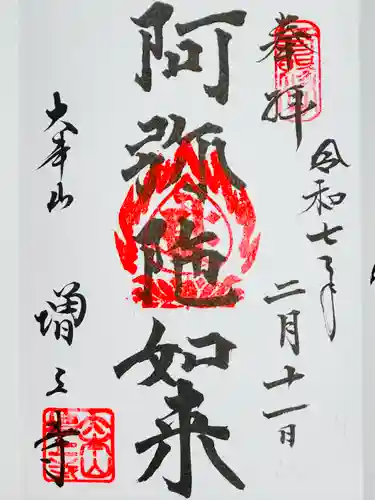 奉拝
令和七年
二月十一日
阿弥陀如来
大本山
増上寺